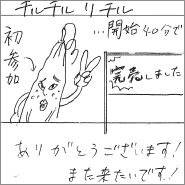 チルチルリチル
…開始40分で
初参加
完売しました
ありがとうございます!
また来たいです!